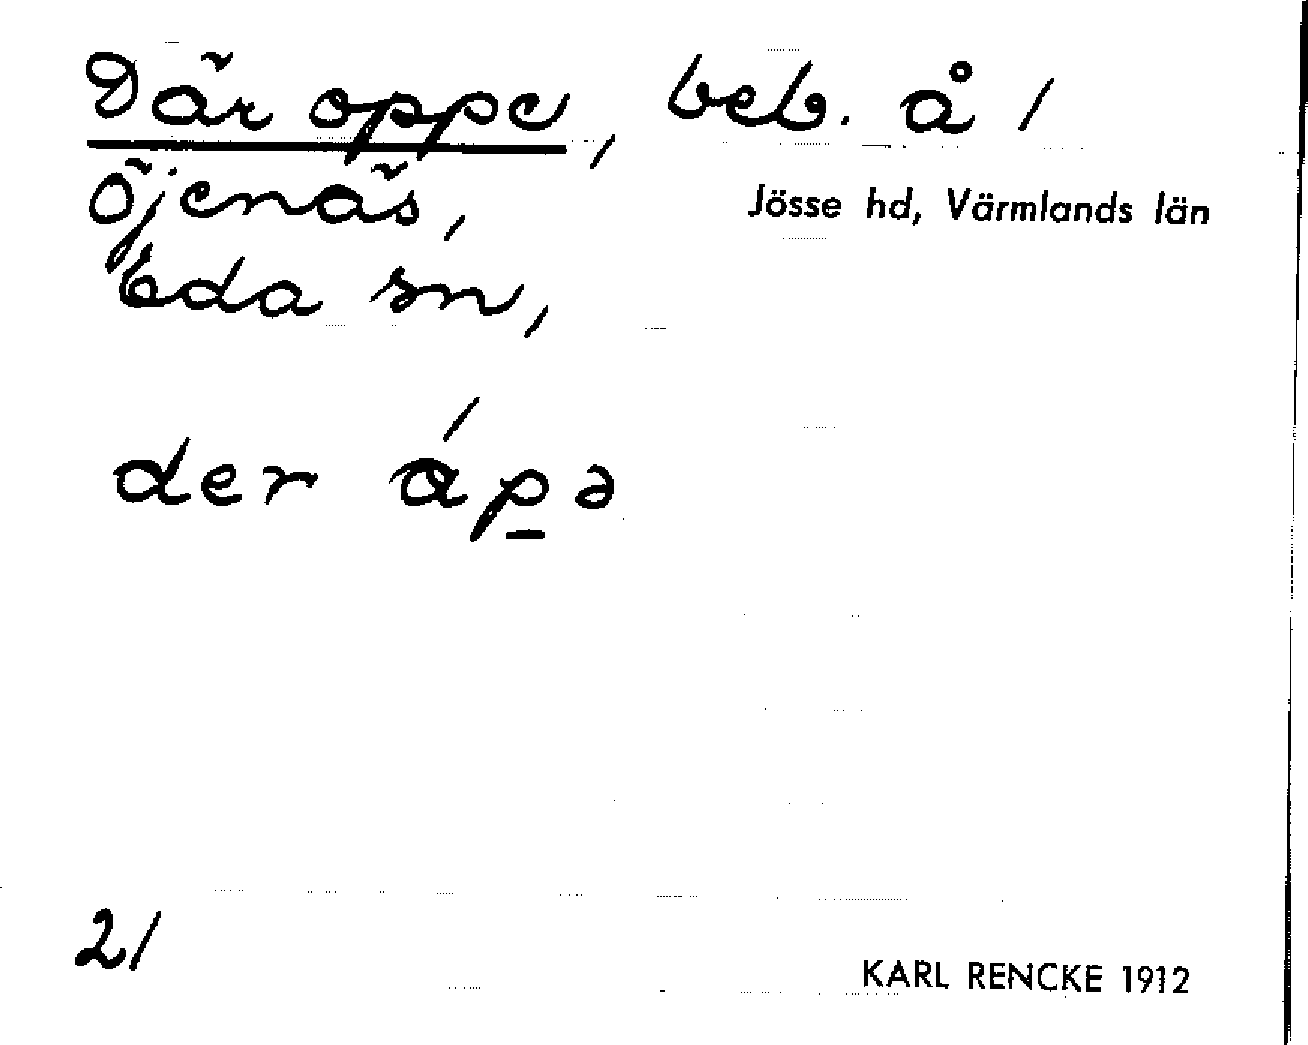 Där oppe, beb. å /
Öjenäs,
Jösse hd, Värmlands län
Eda sn,
der ápə
21
KARL RENCKE 1912